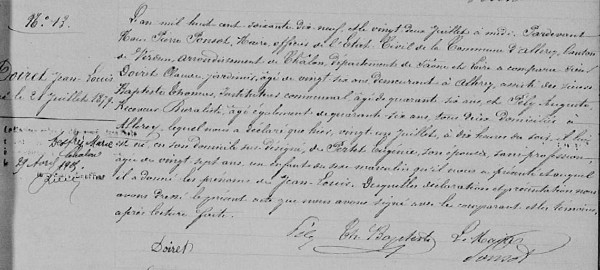 N° 13.
Doiret Jean Louis
né le 21 Juillet 1879
L'an mil huit cent soixante dix neuf, et le vingt deux Juillet à midi. Pardevant
Nous Pierre Ponsot, Maire, officier de l'état Civil de la Commune d'Allerey, Canton
de Verdun, arrondissement de Châlon, département de Saône et Loire a comparu
Doiret Claude, jardinier, âgé de vingt six ans, demeurant à Allerey, assisté des sieurs
Baptiste Thomas, Instituteur communal, âgé de quarante six ans, et Pély Auguste,
Receveur Buraliste, âgé également de quarante six ans, tous deux Domiciliés à
Allerey, lequel nous a déclaré que hier, vingt un Juillet, à dix heures du soir, il lui
est né, en son domicile sus désigné, de Virginie, son épouse, sans profession,
âgée de vingt sept ans, un enfant du sexe masculin qu'il nous a présenté et auquel
il a donné les prénoms de Jean Louis. Desquelles déclaration et présentation nous
avons dressé le présent acte que nous avons signé avec le comparant et les témoins,
après lecture faite.
Marie
Chalon
29 Avril
Pély Th Baptiste Le Maire
Doiret Ponsot